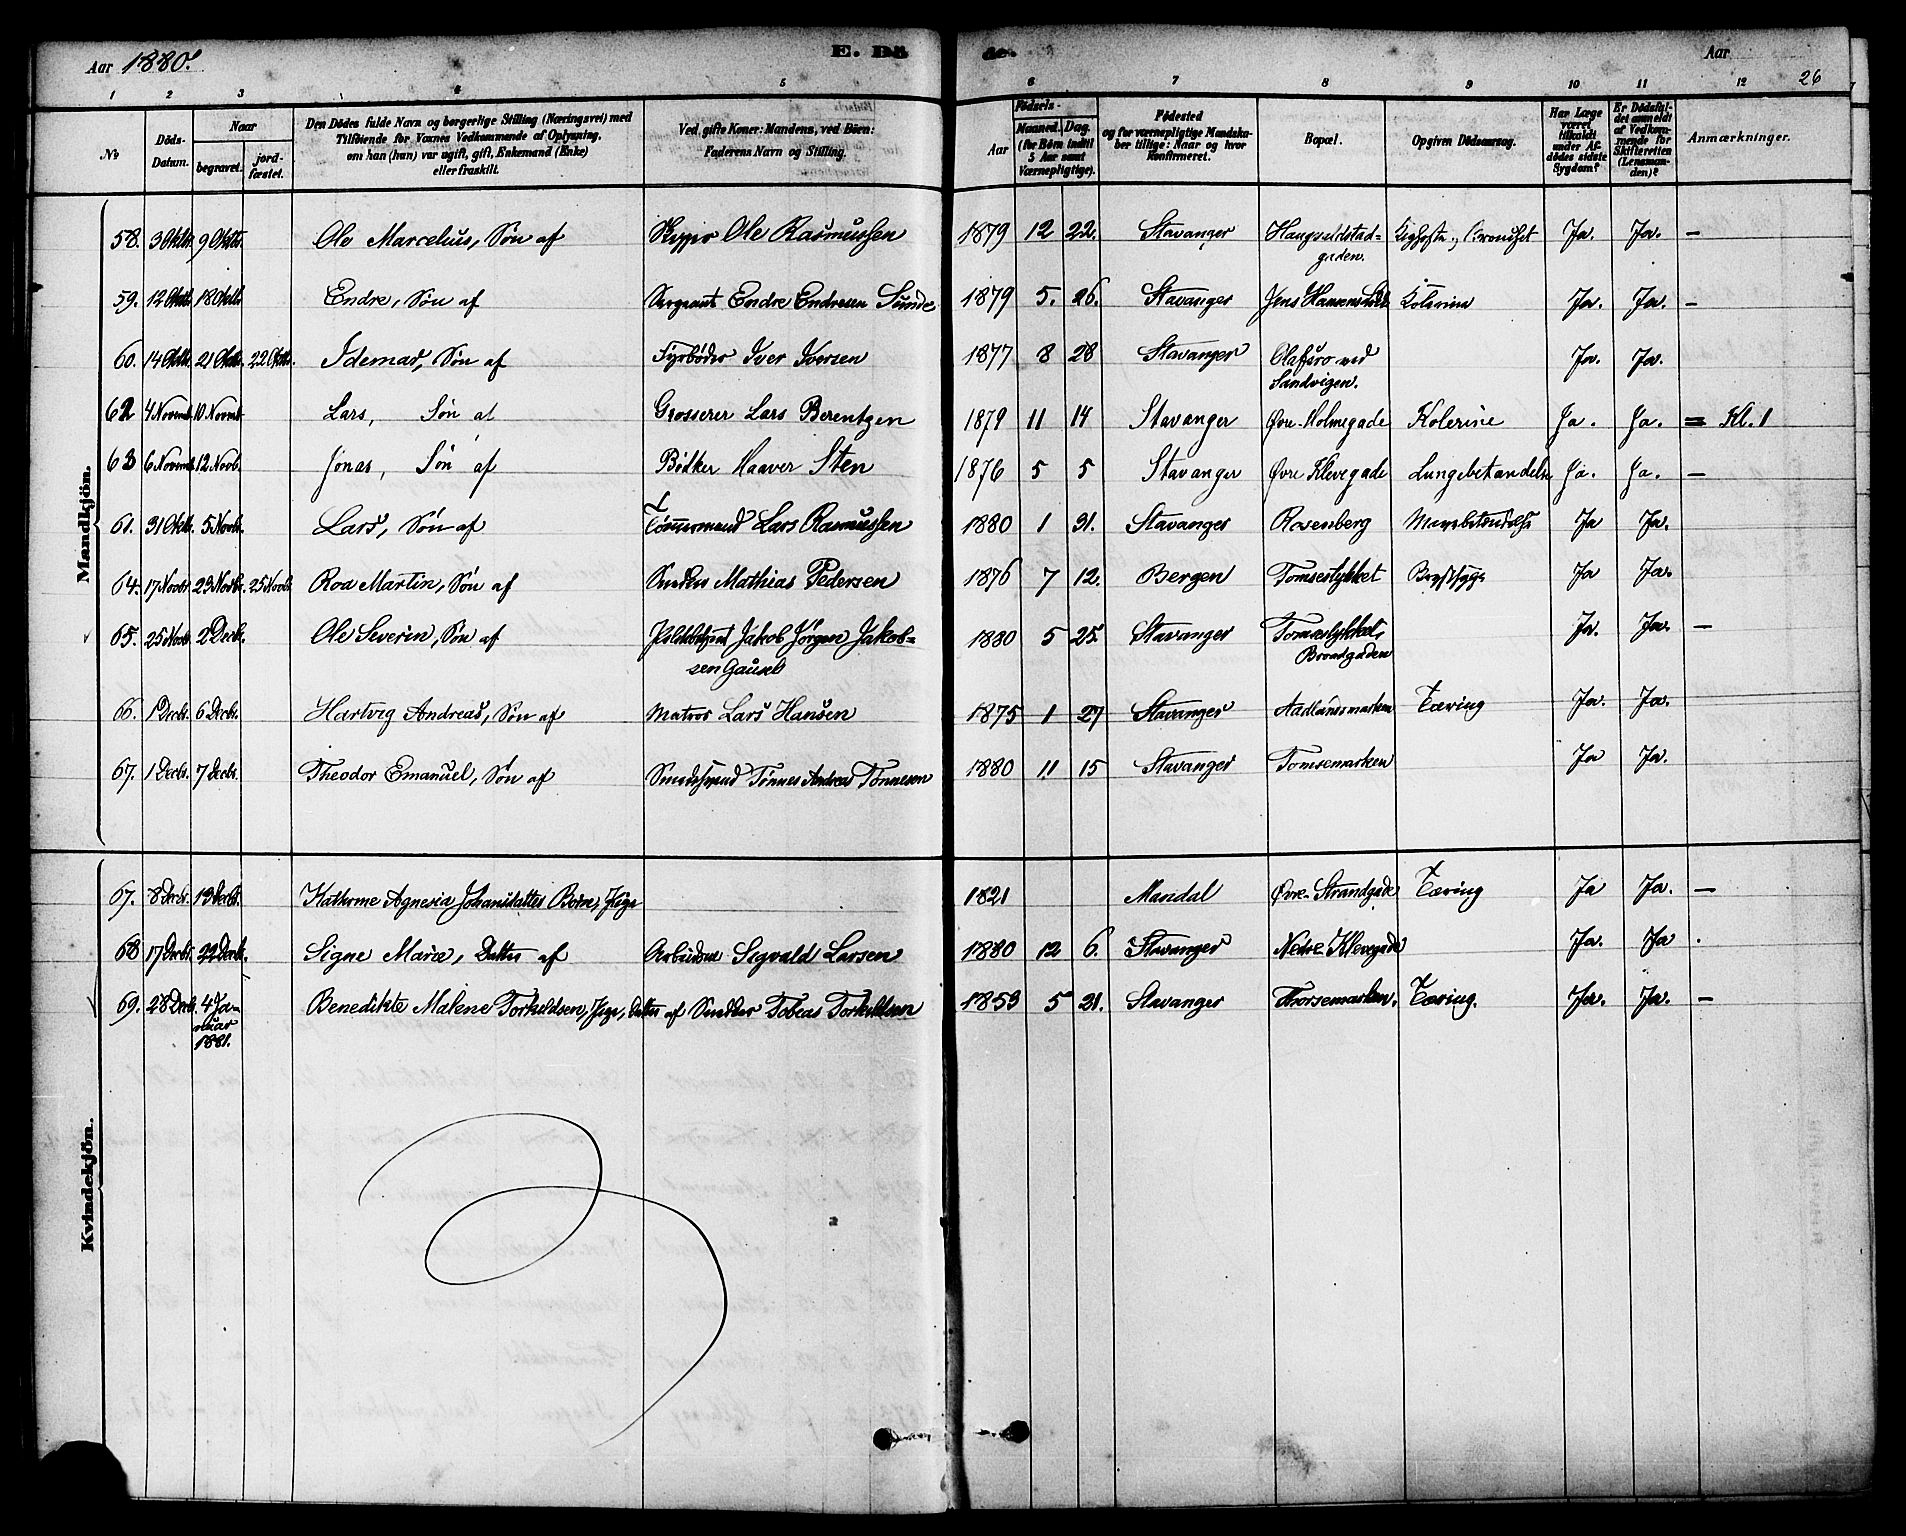 Aar 1880.
E. Dö
de.
Aar
26
1 2 3 4 5 6 7 8 9 10 11 12
No
Döds-Datum.
Naar
begravet.
jord-fæstet.
Den Dödes fulde Navn og borgerlige Stilling (Næringsvei) med
Tilföiende for Voxnes Vedkommende af Oplysning,
om han (hun) var ugift, gift, Enkemand (Enke)
eller fraskilt.
Ved gifte Koner: Mandens, ved Börn:
Faderens Navn og Stilling.
Aar
Födsels-
Maaned. Dag.
(for Börn indtil
5 Aar samt
Værnepligtige).
Födested
og for værnepligtige Mandska-
ber tillige: Naar og hvor
Konfirmeret.
Bopæl.
Opgiven Dödsaarsag.
Har Læge
været
tilkaldt
under Af-
dödes sidste
Sygdom?
Er Dödsfal-
det anmeldt
af Vedkom-
mende for
Skifteretten
(Lensman-
den)?
Anmærkninger.
Mandkjön.
58. 3 Oktbr. 9 Oktbr. Ole Marcelius, Søn af Skipper Ole Rasmussen 1879 12 22. Stavanger Haugvaldstad- Kighoste, Bronchit Ja. Ja. —
gaden.
59. 12 Oktbr. 18 Oktbr. Endre, Søn af Sergeant Endre Endresen Sunde 1879 5. 26. Stavanger Jens Hansens Kolerina Ja Ja. —
60. 14 Oktbr. 21 Oktbr. 22 Oktbr. Idemar, Søn af Fyrbøder Iver Iversen 1877 8 28 Stavanger Olafsro ved Ja. Ja.
Sandvigen.
62 4 Novmb. 10 Novmb. Lars, Søn af Grosserer Lars Berentzen 1879 11 14 Stavanger Øvre Holmegade Kolerine Ja. Ja. = Kl. 1
63 6 Novmb. 12 Novb. Jonas, Søn af Bødker Haaver Sten 1876 5 5 Stavanger Øvre Klevegade Lungebetændelse Ja. Ja. —
61. 31 Oktb. 5 Novbr. Lars, Søn af Tømmermand Lars Rasmussen 1880 1 31. Stavanger Rosenberg Mavebetændelse Ja Ja.
64. 17 Novbr. 23 Novbr. 25 Novbr. Roa Martin, Søn af Snedker Mathias Pedersen 1876 7 12. Bergen Tomsestykket Brystsyge Ja Ja.
65. 25 Novbr. 2 Decbr. Ole Severin, Søn af Politibetjent Jakob Jørgen Jakob- 1880 5 25. Stavanger Tomsestykket, Ja. Ja. —
sen Gausel Brandgaden
66. 1 Decbr. 6 Decbr. Hartvig Andreas, Søn af Matros Lars Hansen 1875 1 27 Stavanger Aadlansmarken Tæring Ja. Ja.
67. 1 Decbr. 7 Decbr. Theodor Emanuel, Søn af Smedesvend Tønnes Andrea Tønnesen 1880 11 15 Stavanger Tomsemarken Ja Ja.
Kvindekjön.
67. 8 Decbr. 13 Decbr. Kathrine Agnesia Johansdatter Boine, Pige 1821 Mandal Øvre Strandgade Tæring Ja Ja. —
68 17 Decbr. 22 Decbr. Signe Marie, Datter af Arbeidsm Sigvald Larsen 1880 12 6. Stavanger Nedre Klevegade Ja. Ja .
69. 28 Decb. 4 Ja- Benedikte Malene Torkildsen, Pige, Datter af Snedker Tobias Torkildsen 1853 5 21. Stavanger Thorsemarken. Tæring. Ja. Ja. —
nuar
1881.